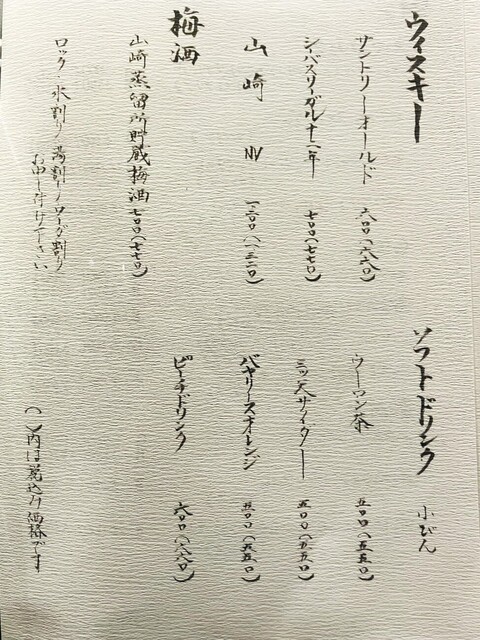 ウィスキー
サントリーオールド 六〇〇(六六〇)
シーバスリーガル十二年 七〇〇(七七〇)
山崎 NV 一二〇〇(一三二〇)
梅酒
山崎蒸留所貯蔵梅酒 七〇〇(七七〇)
ロック/水割り/湯割り/ソーダ割り
お申し付け下さい
ソフトドリンク 小びん
ウーロン茶 五〇〇(五五〇)
三ツ矢サイダー 五〇〇(五五〇)
バヤリースオレンジ 五〇〇(五五〇)
ピーチドリンク 六〇〇(六六〇)
( )内は税込み価格です